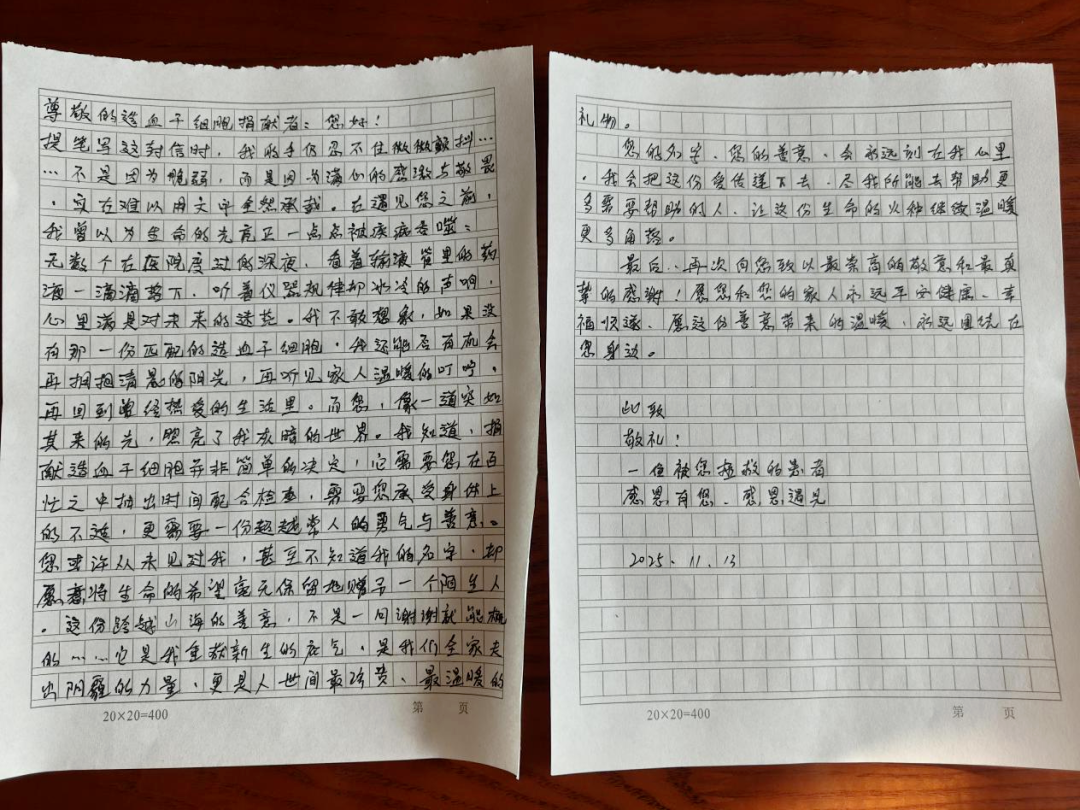 尊敬的造血干细胞捐献者：您好！
提笔写这封信时，我的手仍忍不住微微颤抖……
……不是因为脆弱，而是因为满心的感激与敬畏
，实在难以用文字全然承载。在遇见您之前，
我曾以为生命的光亮正一点点被疾病吞噬：
无数个在医院度过的深夜，看着输液管里的药
液一滴滴落下，听着仪器规律却冰冷的声响，
心里满是对未来的迷茫。我不敢想象，如果没
有那一份匹配的造血干细胞，我还能否有机会
再拥抱清晨的阳光，再听见家人温暖的叮咛，
再回到曾经热爱的生活里。而您，像一道突如
其来的光，照亮了我灰暗的世界。我知道，捐
献造血干细胞并非简单的决定，它需要您在百
忙之中抽出时间配合检查，需要您承受身体上
的不适，更需要一份超越常人的勇气与善意。
您或许从未见过我，甚至不知道我的名字，却
愿意将生命的希望毫无保留地赠予一个陌生人
。这份跨越山海的善意，不是一句谢谢就能概
的……它是我重获新生的底气，是我们全家走
出阴霾的力量，更是人世间最珍贵、最温暖的
20×20=400
第 页
礼物。
您的名字、您的善意，会永远刻在我心里
，我会把这份爱传递下去，尽我所能去帮助更
多需要帮助的人，让这份生命的火种继续温暖
更多角落。
最后，再次向您致以最崇高的敬意和最真
挚的感谢！愿您和您的家人永远平安健康、幸
福顺遂，愿这份善意带来的温暖，永远围绕在
您身边。
此致
敬礼！
一位被您拯救的患者
感恩有您、感恩遇见
2025.11.13
20×20=400
第 页